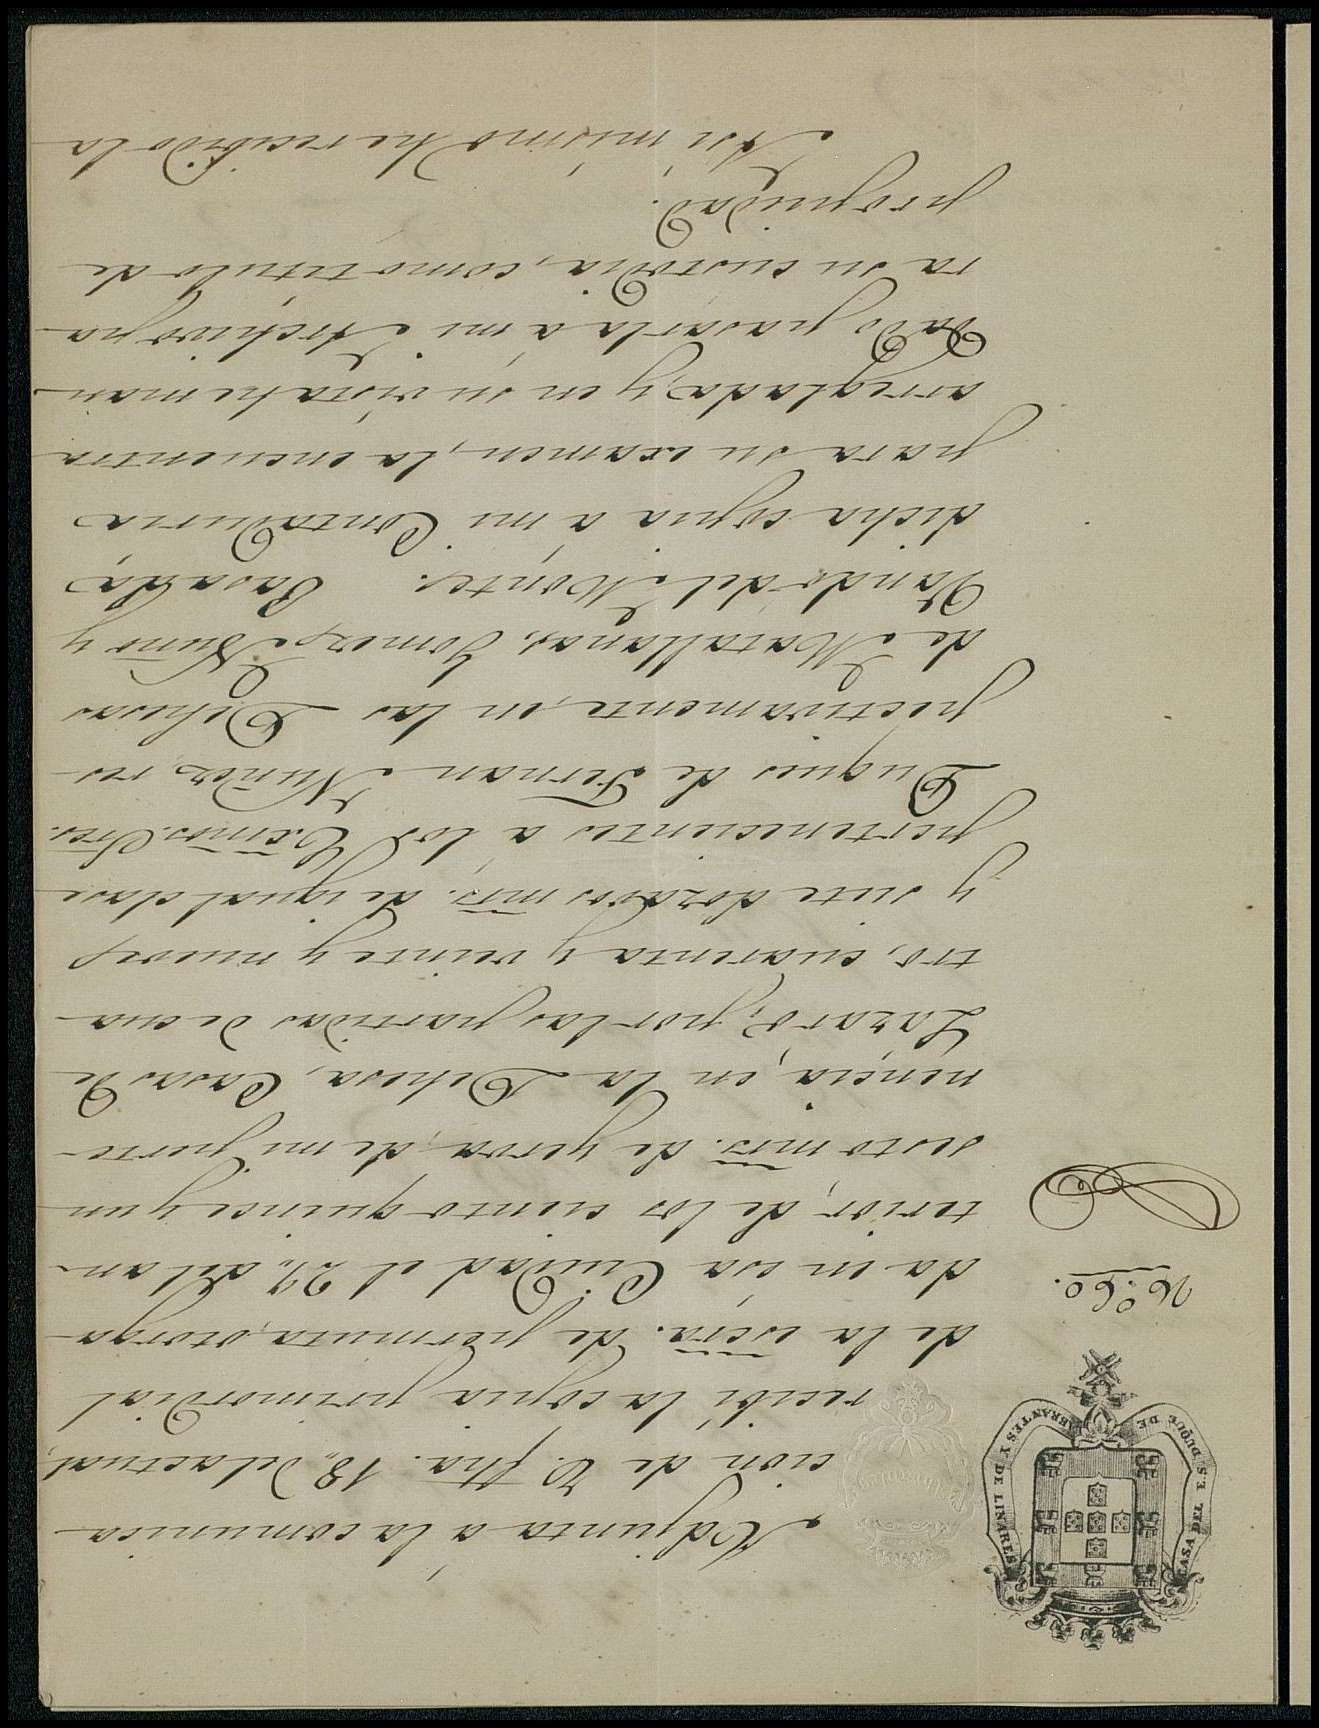 CASA DEL E. S. DUQUE DE ABRANTES Y DE LINARES
Nº 60.
Adjunta á la comunica-
ción de V. fha. 18, del actual,
recibí la copia primordial
de la escra. de permuta, otorga-
da en esa Ciudad el 27, del an-
terior, de los ciento quince y un
sesto mrs. de yerva, de mi perte-
nencia, en la Dehesa, Casas de
Lazaro, por las partidas de cua-
tro, cuarenta y veinte y nueve
y siete dozavos mrs. de igual clase
pertenecientes á los Excmos. Sres.
Duques de Fernan Nuñez, res-
pectivamente, en las Dehesas
de Matallanas, Gomez Nuño y
Vando del Montes. Pasada,
dicha copia á mi Contaduria
para su examen, la encuentra
arreglada, y en su vista he man-
dado pasarla á mi Archivo pa-
ra su custodia, como titulo de
propiedad.
Asi mismo he recibido la